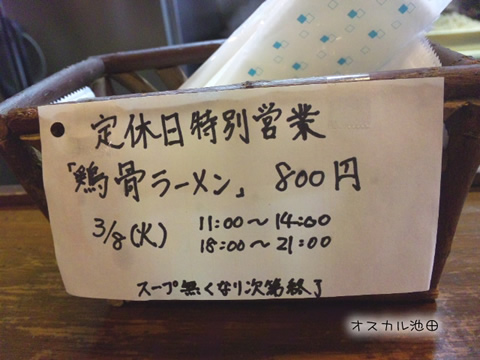 定休日特別営業
「鶏骨ラーメン」 800円
3/8(火) 11:00～14:00
18:00～21:00
スープ無くなり次第終了
オスカル池田